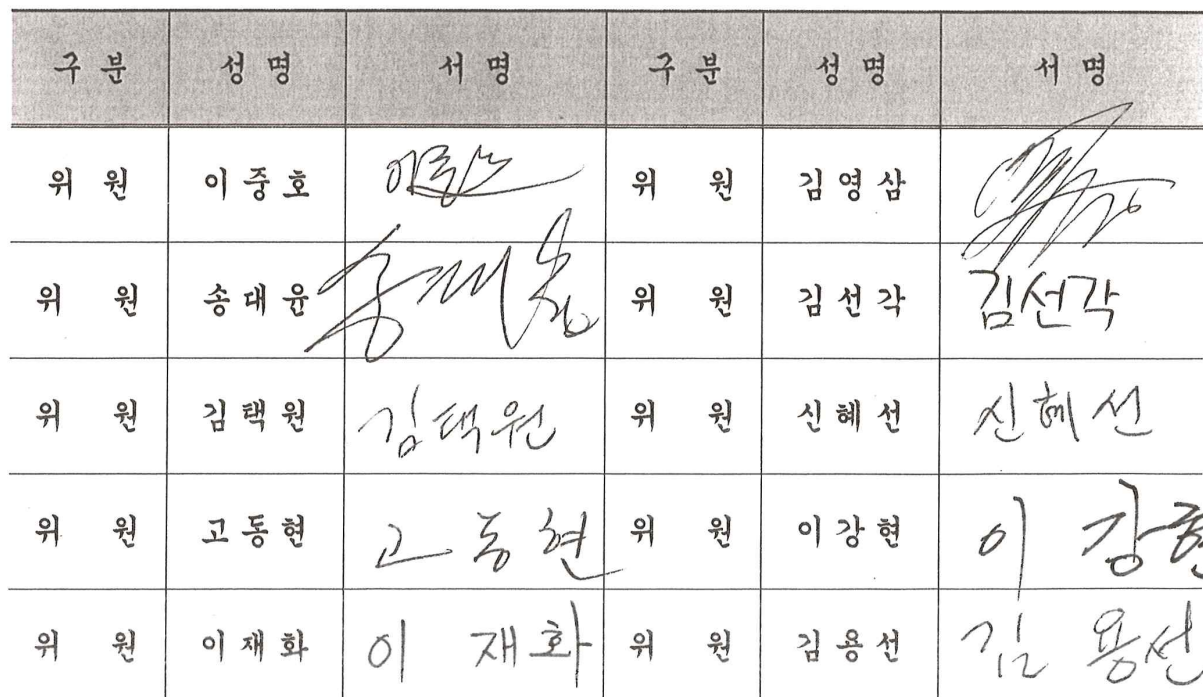 구 분 성 명 서 명 구 분 성 명 서 명
위 원 이 중 호 위 원 김 영 삼
위 원 송 대 윤 위 원 김 선 각 김선각
위 원 김 택 원 김택원 위 원 신 혜 선 신혜선
위 원 고 동 현 고 동 현 위 원 이 강 현 이 강현
위 원 이 재 화 이 재화 위 원 김 용 선 김 용선